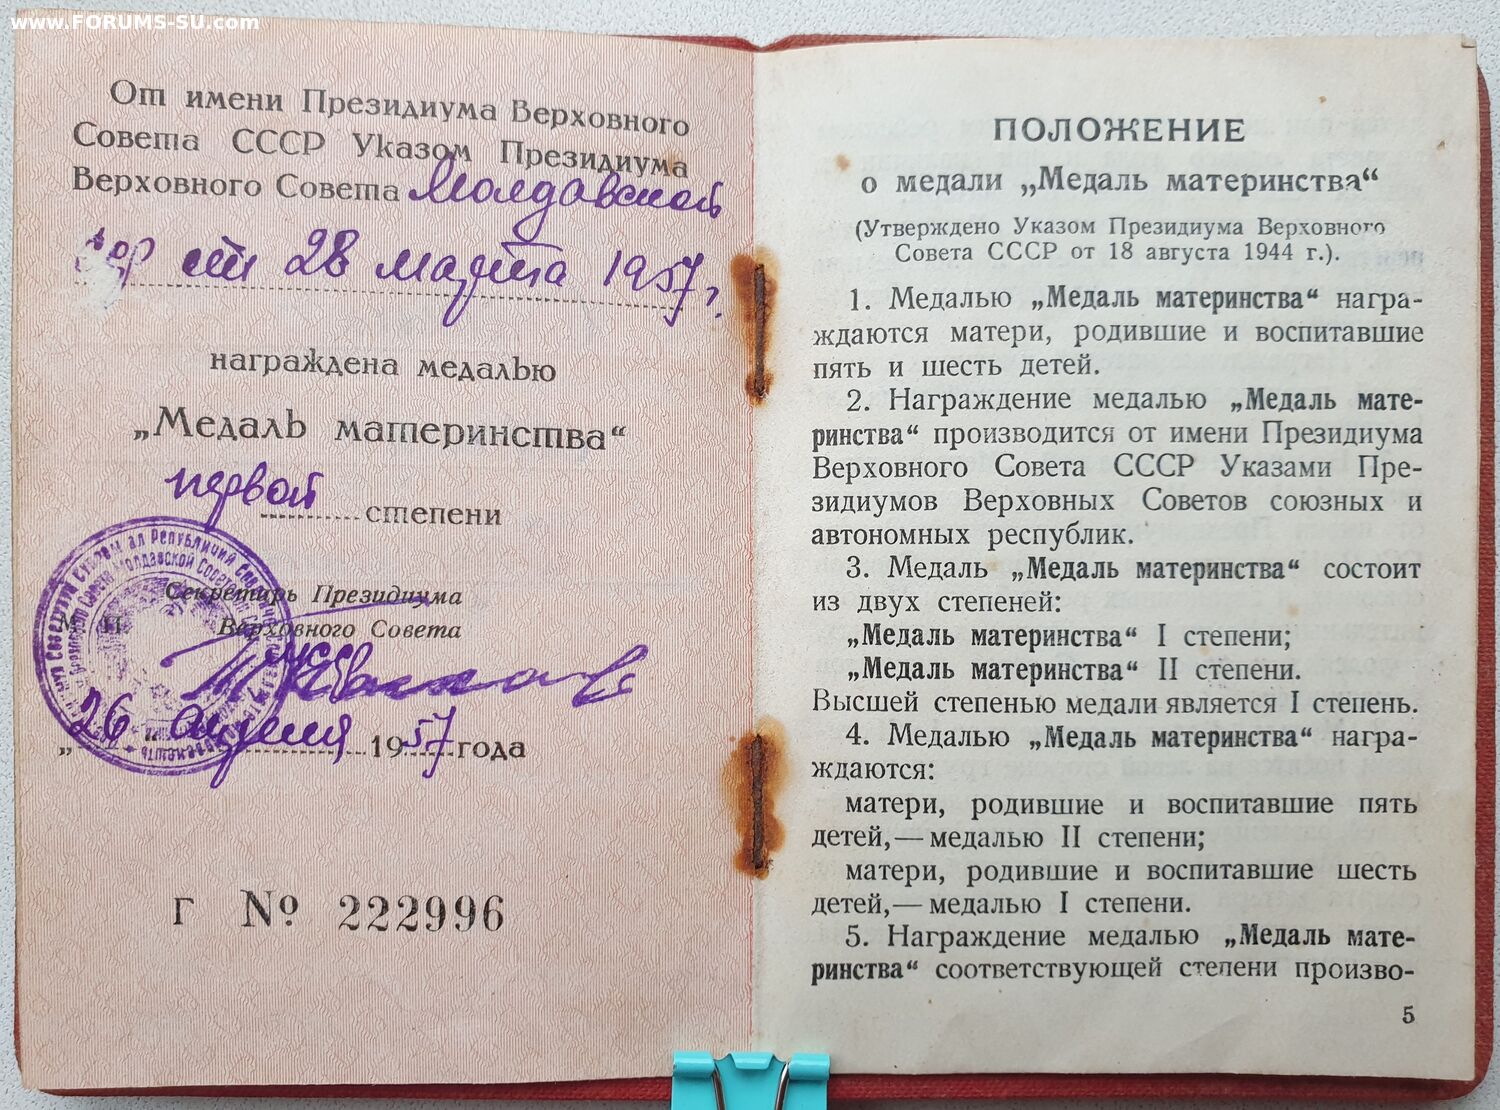 www.FORUMS-SU.com
От имени Президиума Верховного
Совета СССР Указом Президиума
Верховного Совета Молдавской
ССР от 28 марта 1957 г.
награждена медалью
„Медаль материнства“
первой степени
Секретарь Президиума
М. П. Верховного Совета
МССР
„26“ апреля 1957 года
Г № 222996
ПОЛОЖЕНИЕ
о медали „Медаль материнства“
(Утверждено Указом Президиума Верховного
Совета СССР от 18 августа 1944 г.).
1. Медалью „Медаль материнства“ награ-
ждаются матери, родившие и воспитавшие
пять и шесть детей.
2. Награждение медалью „Медаль мате-
ринства“ производится от имени Президиума
Верховного Совета СССР Указами Пре-
зидиумов Верховных Советов союзных и
автономных республик.
3. Медаль „Медаль материнства“ состоит
из двух степеней:
„Медаль материнства“ I степени;
„Медаль материнства“ II степени.
Высшей степенью медали является I степень.
4. Медалью „Медаль материнства“ награ-
ждаются:
матери, родившие и воспитавшие пять
детей,— медалью II степени;
матери, родившие и воспитавшие шесть
детей,— медалью I степени.
5. Награждение медалью „Медаль мате-
ринства“ соответствующей степени произво-
5